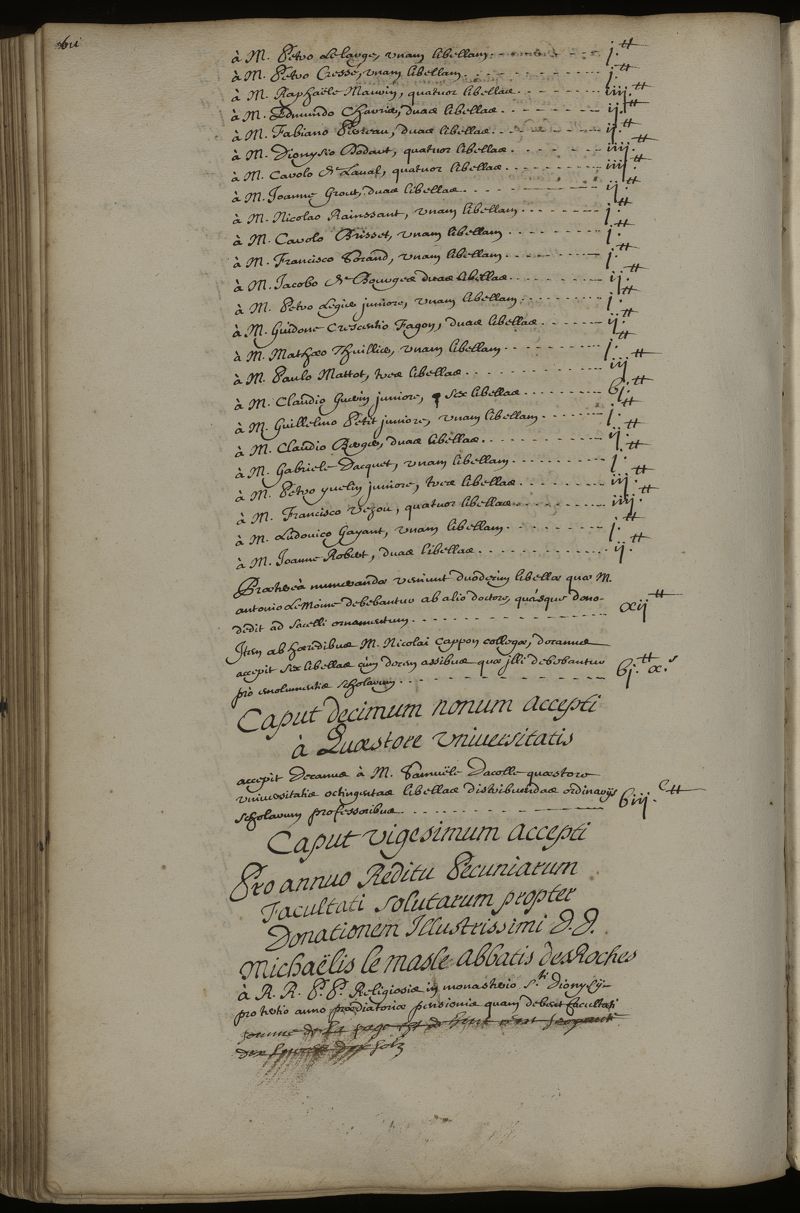 à M. Petro Lelarge, vnam libellam. - - - - - - - j.tt
à M. Petro Cressé, vnam libellam. - - - - - - - j.tt
à M. Raphaële Mauvin, quatuor libellae. - - - - - iiij.tt
à M. Edmundo duae libellae. - - - - - - ij.tt
à M. Fabiano duae libellae. - - - - - - ij.tt
à M. Dionysio Dodart, quatuor libellae. - - - - - iiij.tt
à M. Carolo De Laual, quatuor libellae. - - - - - iiij.tt
à M. Joanne Grout, duae libellae. - - - - - - ij.tt
à M. Nicolao Rainssant, vnam libellam. - - - - - j.tt
à M. Carolo Brisset, vnam libellam. - - - - - - j.tt
à M. Francisco vnam libellam. - - - - - - j.tt
à M. Jacobo De Bourges duae libellae. - - - - - ij.tt
à M. Petro Legier juniore, vnam libellam. - - - - j.tt
à M. Guidone Crescentio Fagon, duae libellae. - - - - ij.tt
à M. Mathaeo Thuillier, vnam libellam. - - - - - j.tt
à M. Paulo Mattot, tres libellae. - - - - - - iij tt
à M. Claudio Guerin juniore, sex libellae. - - - - 6j.tt
à M. Guillelmo Petit juniore, vnam libellam. - - - - j.tt
à M. Claudio Berger, duae libellae. - - - - - - ij.tt
à M. Gabriele Dacquet, vnam libellam. - - - - - j.tt
à M. Petro yuelin juniore, tres libellae. - - - - - iij.tt
à M. Francisco vezou, quatuor libellae. - - - - - iiij.tt
à M. Ludouico Gayant, vnam libellam. - - - - - j.tt
à M. Joanne Robert, duae libellae. - - - - - - ij.tt
Praetereà numerandae veniunt duodecim libellae quae M.
antonio LeMoine debebantur ab alio doctore, quasque dono-
dedit ad sacelli ornamentum. - - - - - - - xij tt
Item ab haeredibus M. Nicolai Cappon collegae, decanus
accepit sex libellas cum decem assibus quae illi debebantur
pro emolumentis scholarum. - - - - - - - 6j.tt x.s
Caput decimum nonum accepti
à Quaestore Vniuersitatis
accepit Decanus à M. Samuële Dacolle quaestore
vniuersitatis octingentas libellas distribuendas ordinarijs
scholarum professoribus. - - - - - - - 6iij.C tt
Caput vigesimum accepti
Pro annuo Reditu Pecuniarum
Facultati solutarum propter
Donationem Illustrissimi D.D.
Michaëlis le masle abbatis desRoches
à R. R. P. P. Religiosis in monasterio S.ti Dionysij
pro tertio anno praediatoriae pensionis quam debent facultati
somme de la page est de huit cent soixante
dix solz